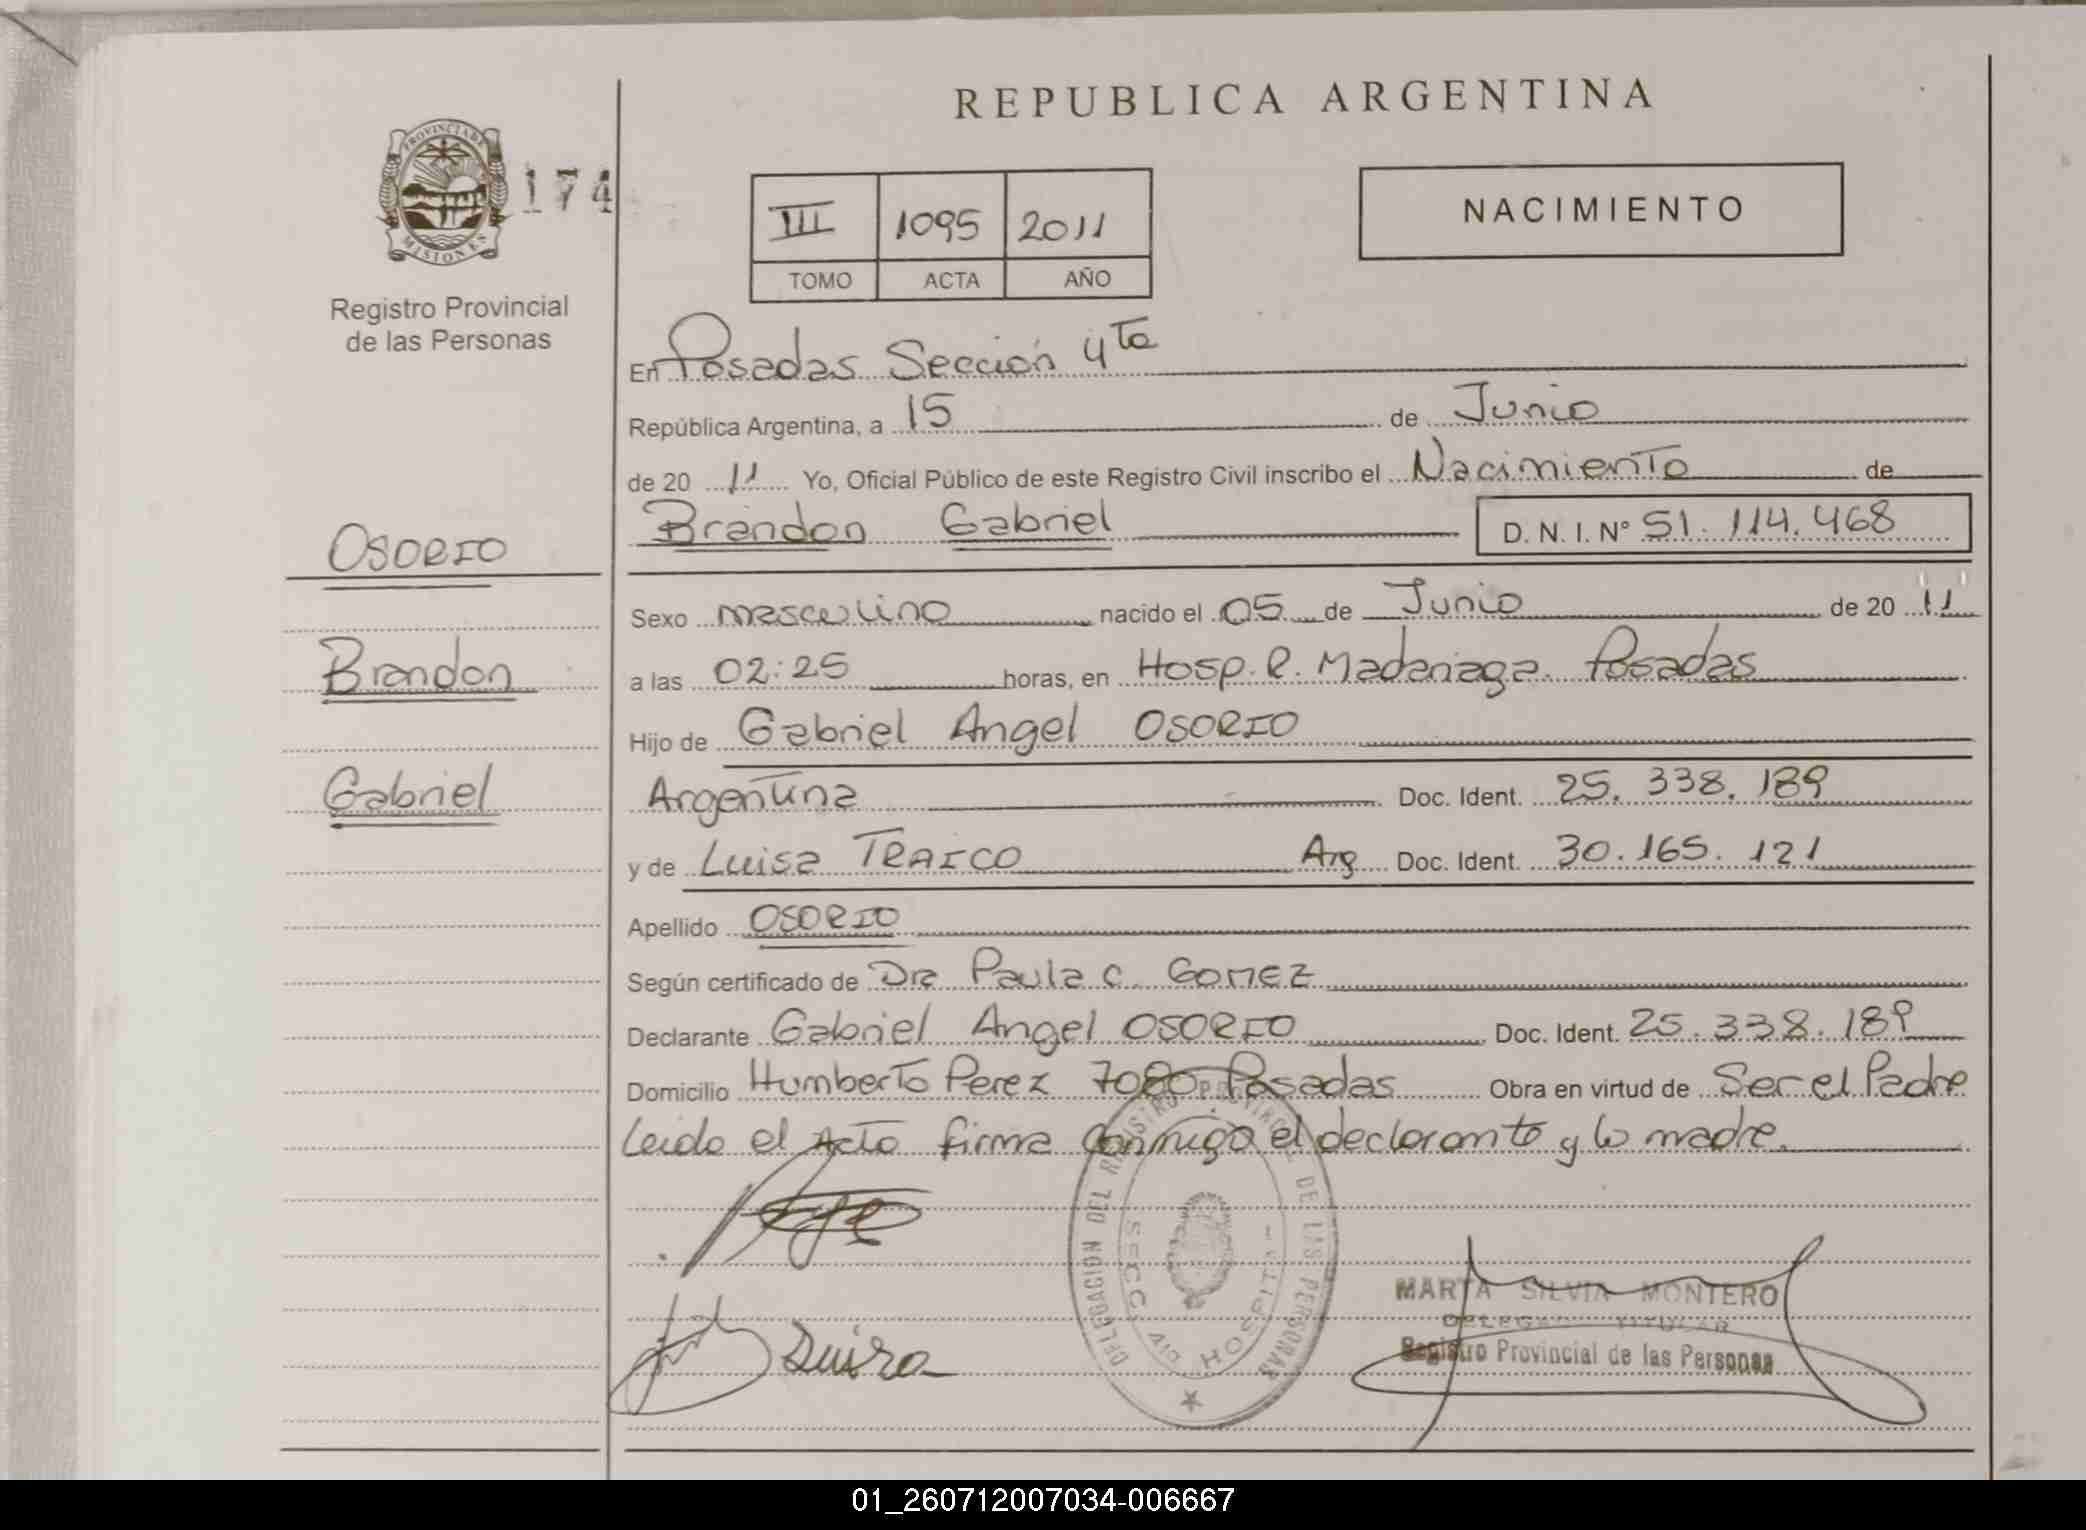 REPUBLICA ARGENTINA
PROVINCIA DE
MISIONES
174
Registro Provincial
de las Personas
III 1095 2011
TOMO ACTA AÑO
NACIMIENTO
En Posadas Sección 4ta
República Argentina, a 15 de Junio
de 20 11 Yo, Oficial Público de este Registro Civil inscribo el Nacimiento de
Brandon Gabriel D. N. I. Nº 51.114.468
OSORIO
Brandon
Gabriel
Sexo masculino nacido el 05 de Junio de 20 11
a las 02:25 horas, en Hosp. R. Madariaga. Posadas
Hijo de Gabriel Angel OSORIO
Argentina Doc. Ident. 25.338.189
y de Luisa TRAICO Arg Doc. Ident. 30.165.121
Apellido OSORIO
Según certificado de Dra Paula C. GOMEZ
Declarante Gabriel Angel OSORIO Doc. Ident. 25.338.189
Domicilio Humberto Perez 7080 Posadas Obra en virtud de Ser el Padre
Leido el Acto firma conmigo el declarante y la madre.
DELEGACION DEL REGISTRO PROVINCIAL DE LAS PERSONAS
SECC. 4ta HOSPITAL
MARTA SILVIA MONTERO
DELEGADA TITULAR
Registro Provincial de las Personas
01_260712007034-006667